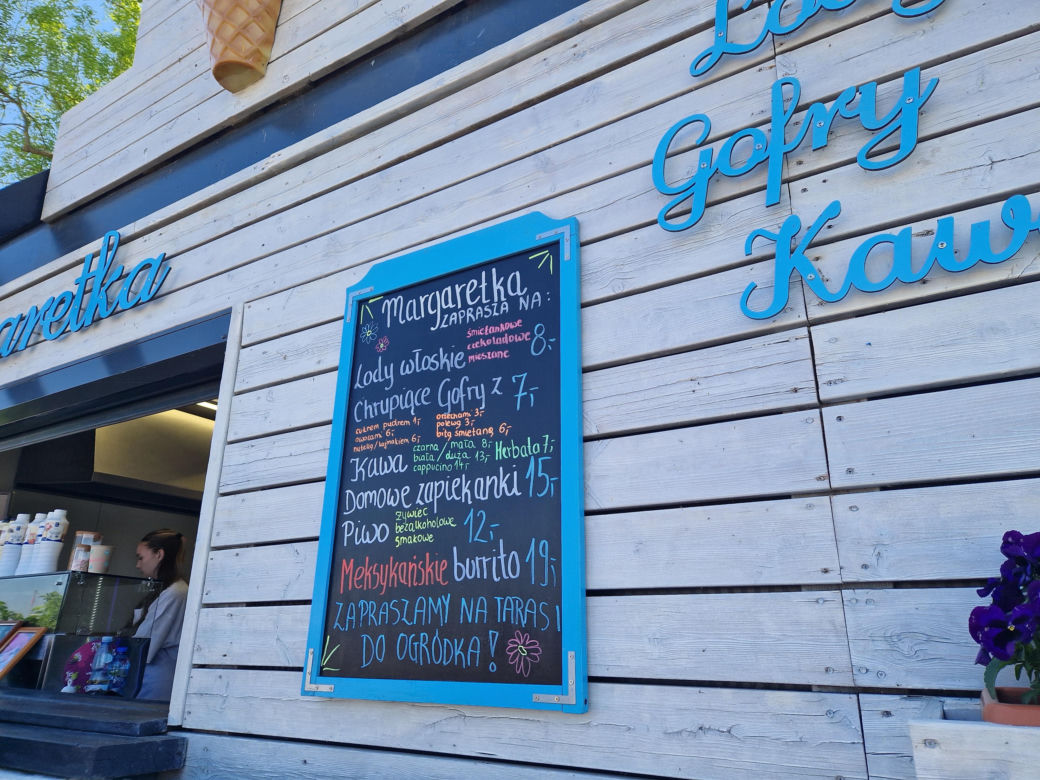 Lody
Gofry
Kawa
aretka
Margaretka
ZAPRASZA NA:
Lody włoskie śmietankowe czekoladowe mieszane 8,-
Chrupiące Gofry z 7,-
cukrem pudrem 1,- orzechami 3,-
owocami 6,- polewą 3,-
nutellą/kajmakiem 6,- bitą śmietaną 6,-
Kawa czarna/mała 8,- Herbata 7,-
biała/duża 13,-
cappucino 14,-
Domowe zapiekanki 15,-
Piwo żywiec bezalkoholowe smakowe 12,-
Meksykańskie burrito 19,-
ZAPRASZAMY NA TARAS I
DO OGRÓDKA!